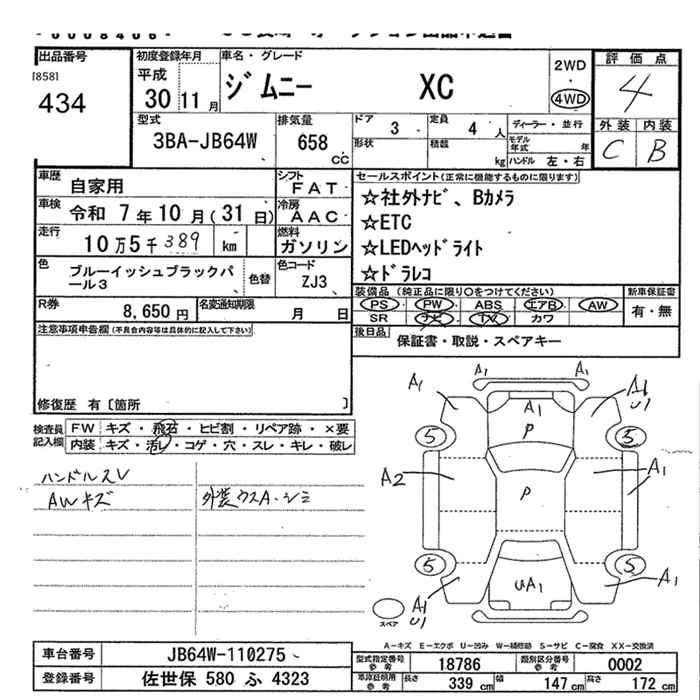 出品番号
[858]
434
初度登録年月
平成
30 11 月
車名・グレード
ジムニー XC
2WD
・
4WD
評価点
4
外装 内装
C B
型式
3BA-JB64W
排気量
658
cc
ドア 3
定員 4 人
形状
積載 kg
ディーラー・並行
モデル年式 年
ハンドル 左・右
車歴 自家用
シフト FAT
車検 令和 7年10月(31日)
冷房 AAC
走行 10万5千389 km
燃料 ガソリン
色 ブルーイッシュブラックパ
ール3
色替
色コード ZJ3
R券 8,650円
名変通知期限 月 日
セールスポイント(正常に機能するものに限ります)
☆社外ナビ、Bカメラ
☆ETC
☆LEDヘッドライト
☆ドラレコ
装備品(純正品に限り○をつけてください)
新車保証書
PS PW ABS エアB AW
SR ナビ TV カワ
有・無
後日品
保証書・取説・スペアキー
注意事項申告欄(不具合内容等は具体的に記入して下さい)
修復歴 有〔箇所 〕
検査員
記入欄
FW キズ・飛石・ヒビ割・リペア跡・×要
内装 キズ・汚レ・コゲ・穴・スレ・キレ・破レ
ハンドルスレ
AWキズ
外装ウスA・シミ
A1 A1
A1 A1 A1
U1
P
5 5
A2 P A1 A1
5 5
UA1 A1
A1
U1
スペア
A-キズ E-エクボ U-凹み W-補修跡 S-サビ C-腐食 XX-交換済
車台番号 JB64W-110275
型式指定番号
参考
18786
類別区分番号
参考
0002
登録番号 佐世保 580 ふ 4323
車庫証明用
参考
長さ 339 cm 幅 147 cm 高さ 172 cm